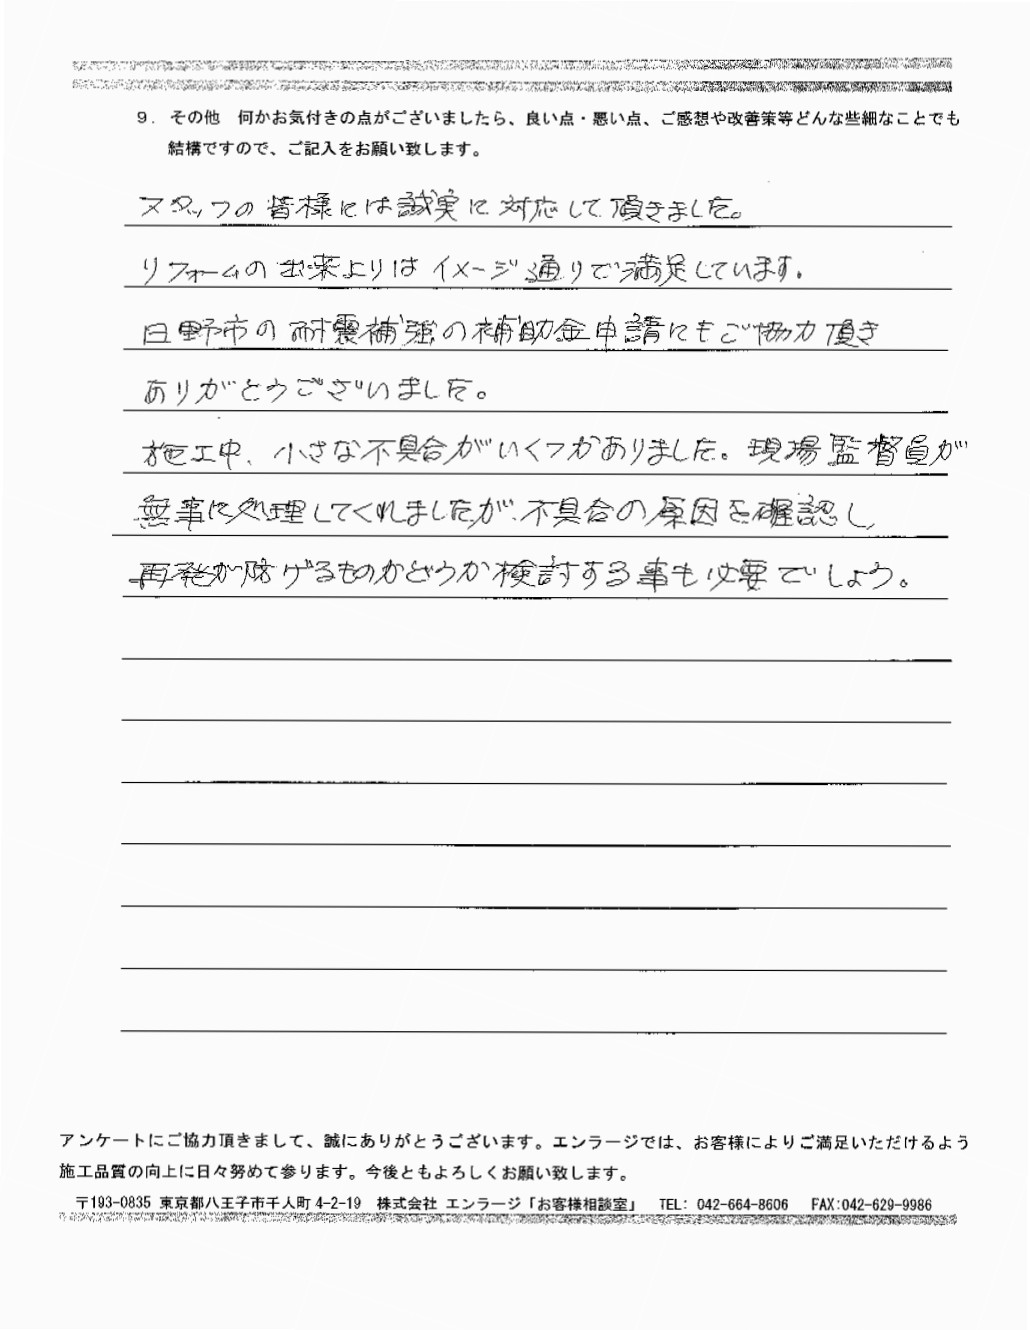 9. その他 何かお気付きの点がございましたら、良い点・悪い点、ご感想や改善策等どんな些細なことでも
結構ですので、ご記入をお願い致します。
スタッフの皆様には誠実に対応して頂きました。
リフォームの出来よりはイメージ通りで満足しています。
日野市の耐震補強の補助金申請にもご協力頂き
ありがとうございました。
施工中、小さな不具合がいくつかありました。現場監督員が
無事に処理してくれましたが、不具合の原因を確認し、
再発が防げるものかどうか検討する事も必要でしょう。
アンケートにご協力頂きまして、誠にありがとうございます。エンラージでは、お客様によりご満足いただけるよう
施工品質の向上に日々努めて参ります。今後ともよろしくお願い致します。
〒193-0835 東京都八王子市千人町4-2-19 株式会社 エンラージ「お客様相談室」 TEL: 042-664-8606 FAX:042-629-9986